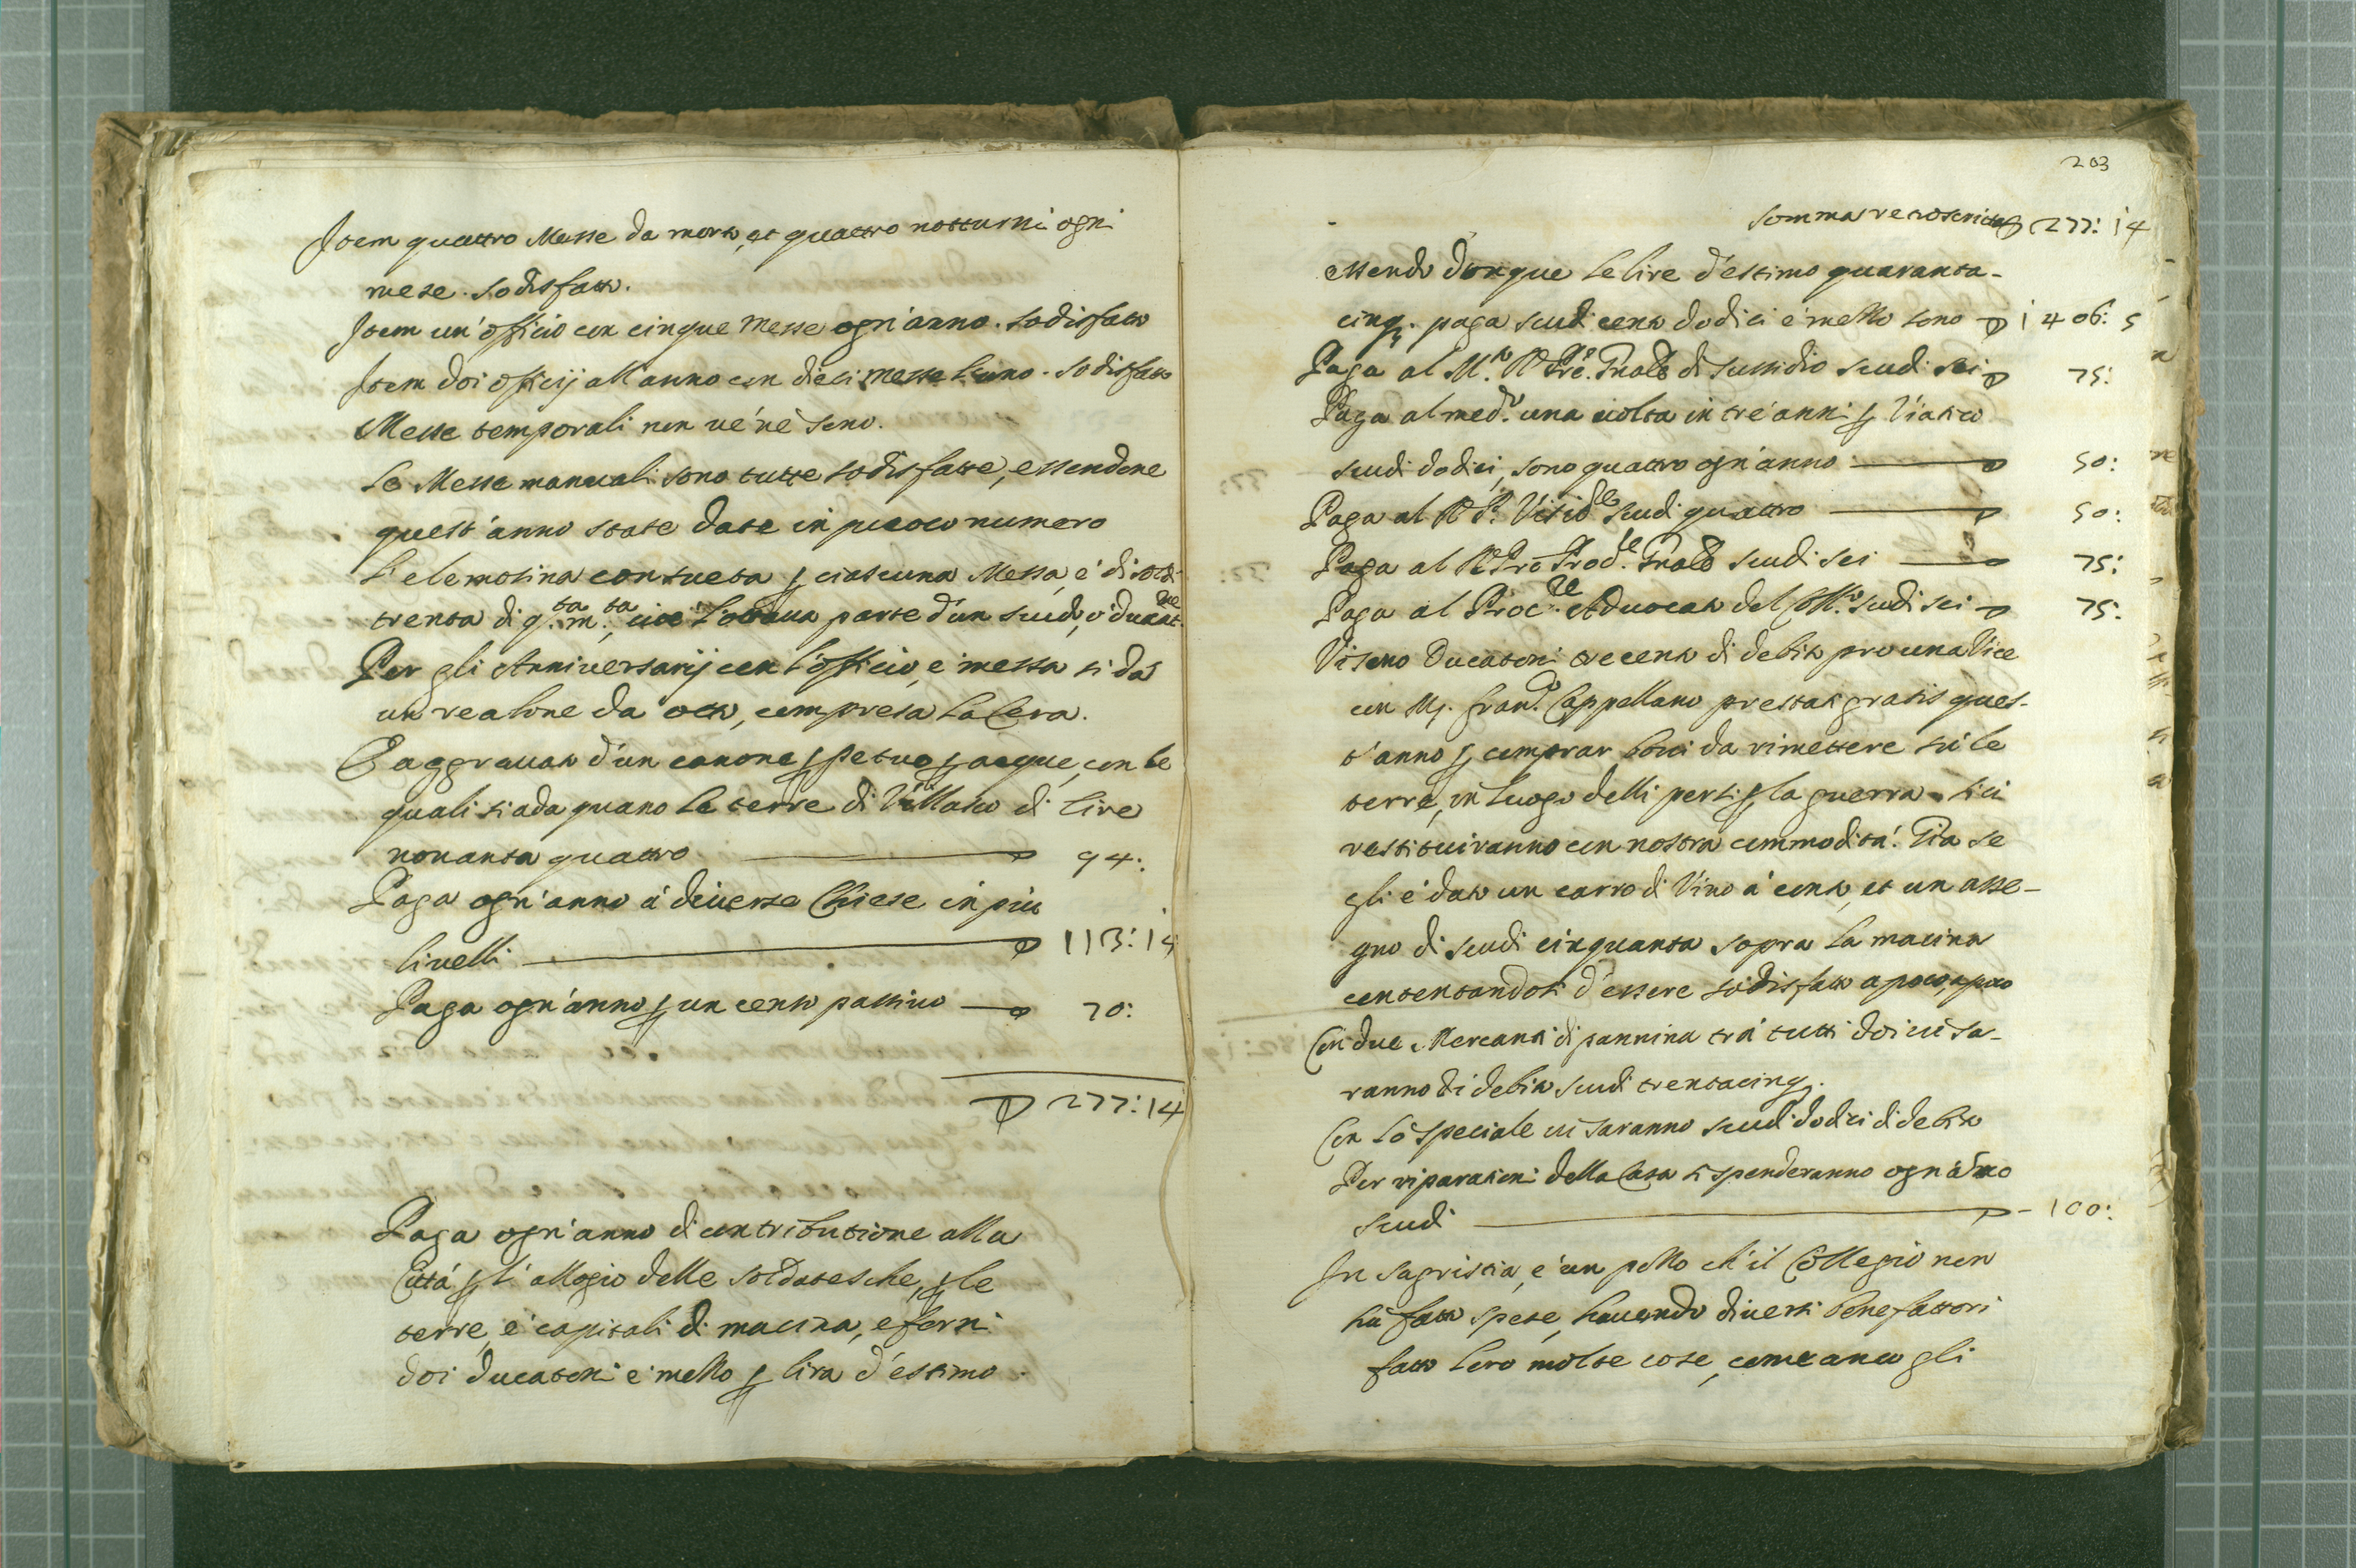 Item quattro Messe da morto, et quattro notturni ogni
mese. sodisfatto.
Item un' officio con cinque Messe ogn'anno. sodisfatto
Item doi officij all'anno con dieci messe l'uno. sodisfatto
Messe temporali non ve n'è sono.
Le Messe manuali sono tutte sodisfatte, essendone
quest'anno state date in piccolo numero
L'elemosina consueta p ciascuna Messa, è di soldi
trenta di q.ta m.ta, cioè l'ottava parte d'un scudo, ò
Per gli Anniversarij con l'officio, e messa si dà
un realone da otto, compresa la Cera.
È aggravato d'un canone ppetuo p acque, con le
quali si adaquano le terre di di lire
nonanta quattro 94:
Paga ogn'anno à diverse Chiese in più
livelli 113: 14
Paga ogn'anno p un censo passivo 70:
277: 14
Paga ogn'anno di contributione alla
Città p l'allogio delle soldatesche, p le
terre, e capitali di macina, e forni
doi ducatoni e mezzo p lira d'estimo.
203
somma retroscritta 277: 14
essendo donque le lire d'estimo quaranta-
cinq. paga scudi cento dodici e mezzo sono 1406: 5
Paga al M.to R Pre. Gñale di sussidio scudi sei 75:
Paga al med.o una volta in tre anni p Viatico
scudi dodici, sono quattro ogn'anno 50:
Paga al R P. scudi quattro 50:
Paga al R Pre Gñale scudi sei 75:
Paga al Proc.re Advocato del Coll.o scudi sei 75:
Vi sono Ducatoni trecento di debito pro una Vice
con Mr. Fran.o Cappellano prestati gratis ques-
t'anno p comprar bovi da rimettere sù le
terre, in luogo delli persi p la guerra si li
restituiranno con nostra commodità. Già se
gli è dato un carro di Vino à conto, et un asse-
gno di scudi cinquanta sopra la macina
contentandosi d'essere sodisfatto a poco, a poco
Con due Mercanti di pannina trà tutti doi vi sa-
ranno di debito scudi trentacinq.
Con lo speciale vi saranno scudi dodici di debito
Per riparationi della Casa si spenderanno ogn'anno
scudi 100:
In Sagristia, è un pezzo ch'il Collegio non
hà fatto spese, havendo diversi benefattori
fatto loro molte cose, come anco gli